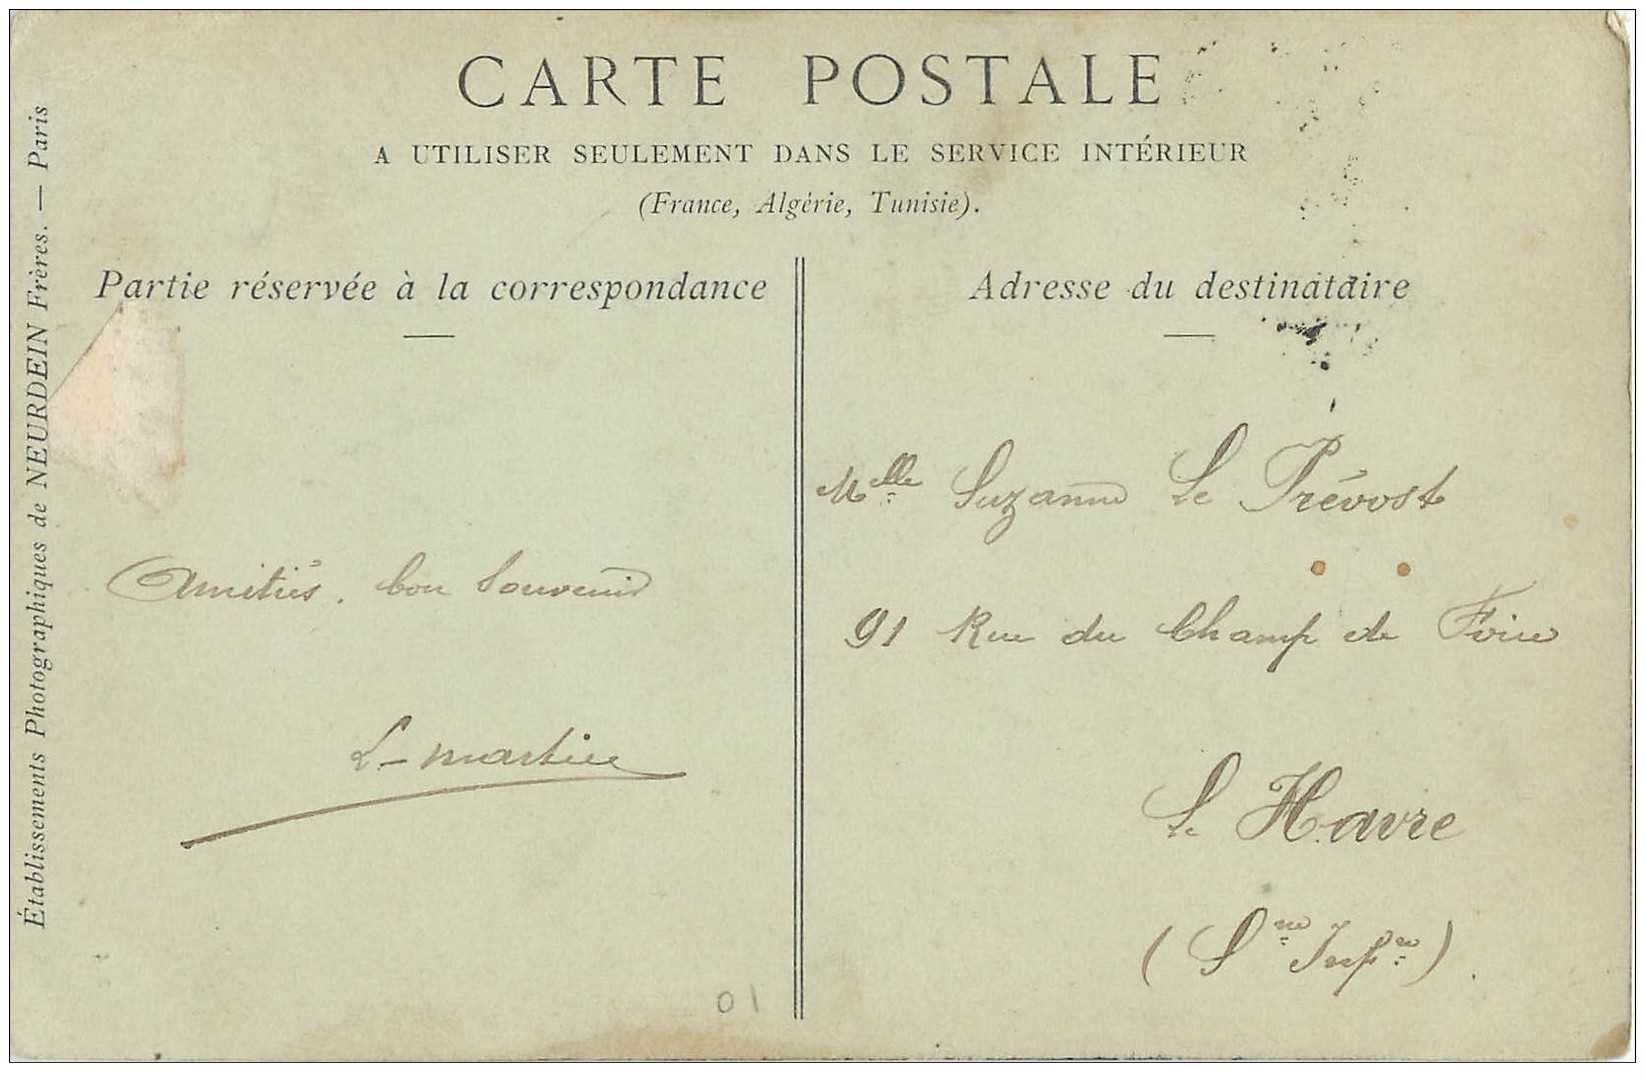 CARTE POSTALE
A UTILISER SEULEMENT DANS LE SERVICE INTÉRIEUR
(France, Algérie, Tunisie).
Établissements Photographiques de NEURDEIN Frères. — Paris
Partie réservée à la correspondance
Amitiés. bon Souvenir
L-martin
01
Adresse du destinataire
Mlle Suzanne Le Prévost
91 Rue du Champ de Foire
Le Havre
(Sne Infre).